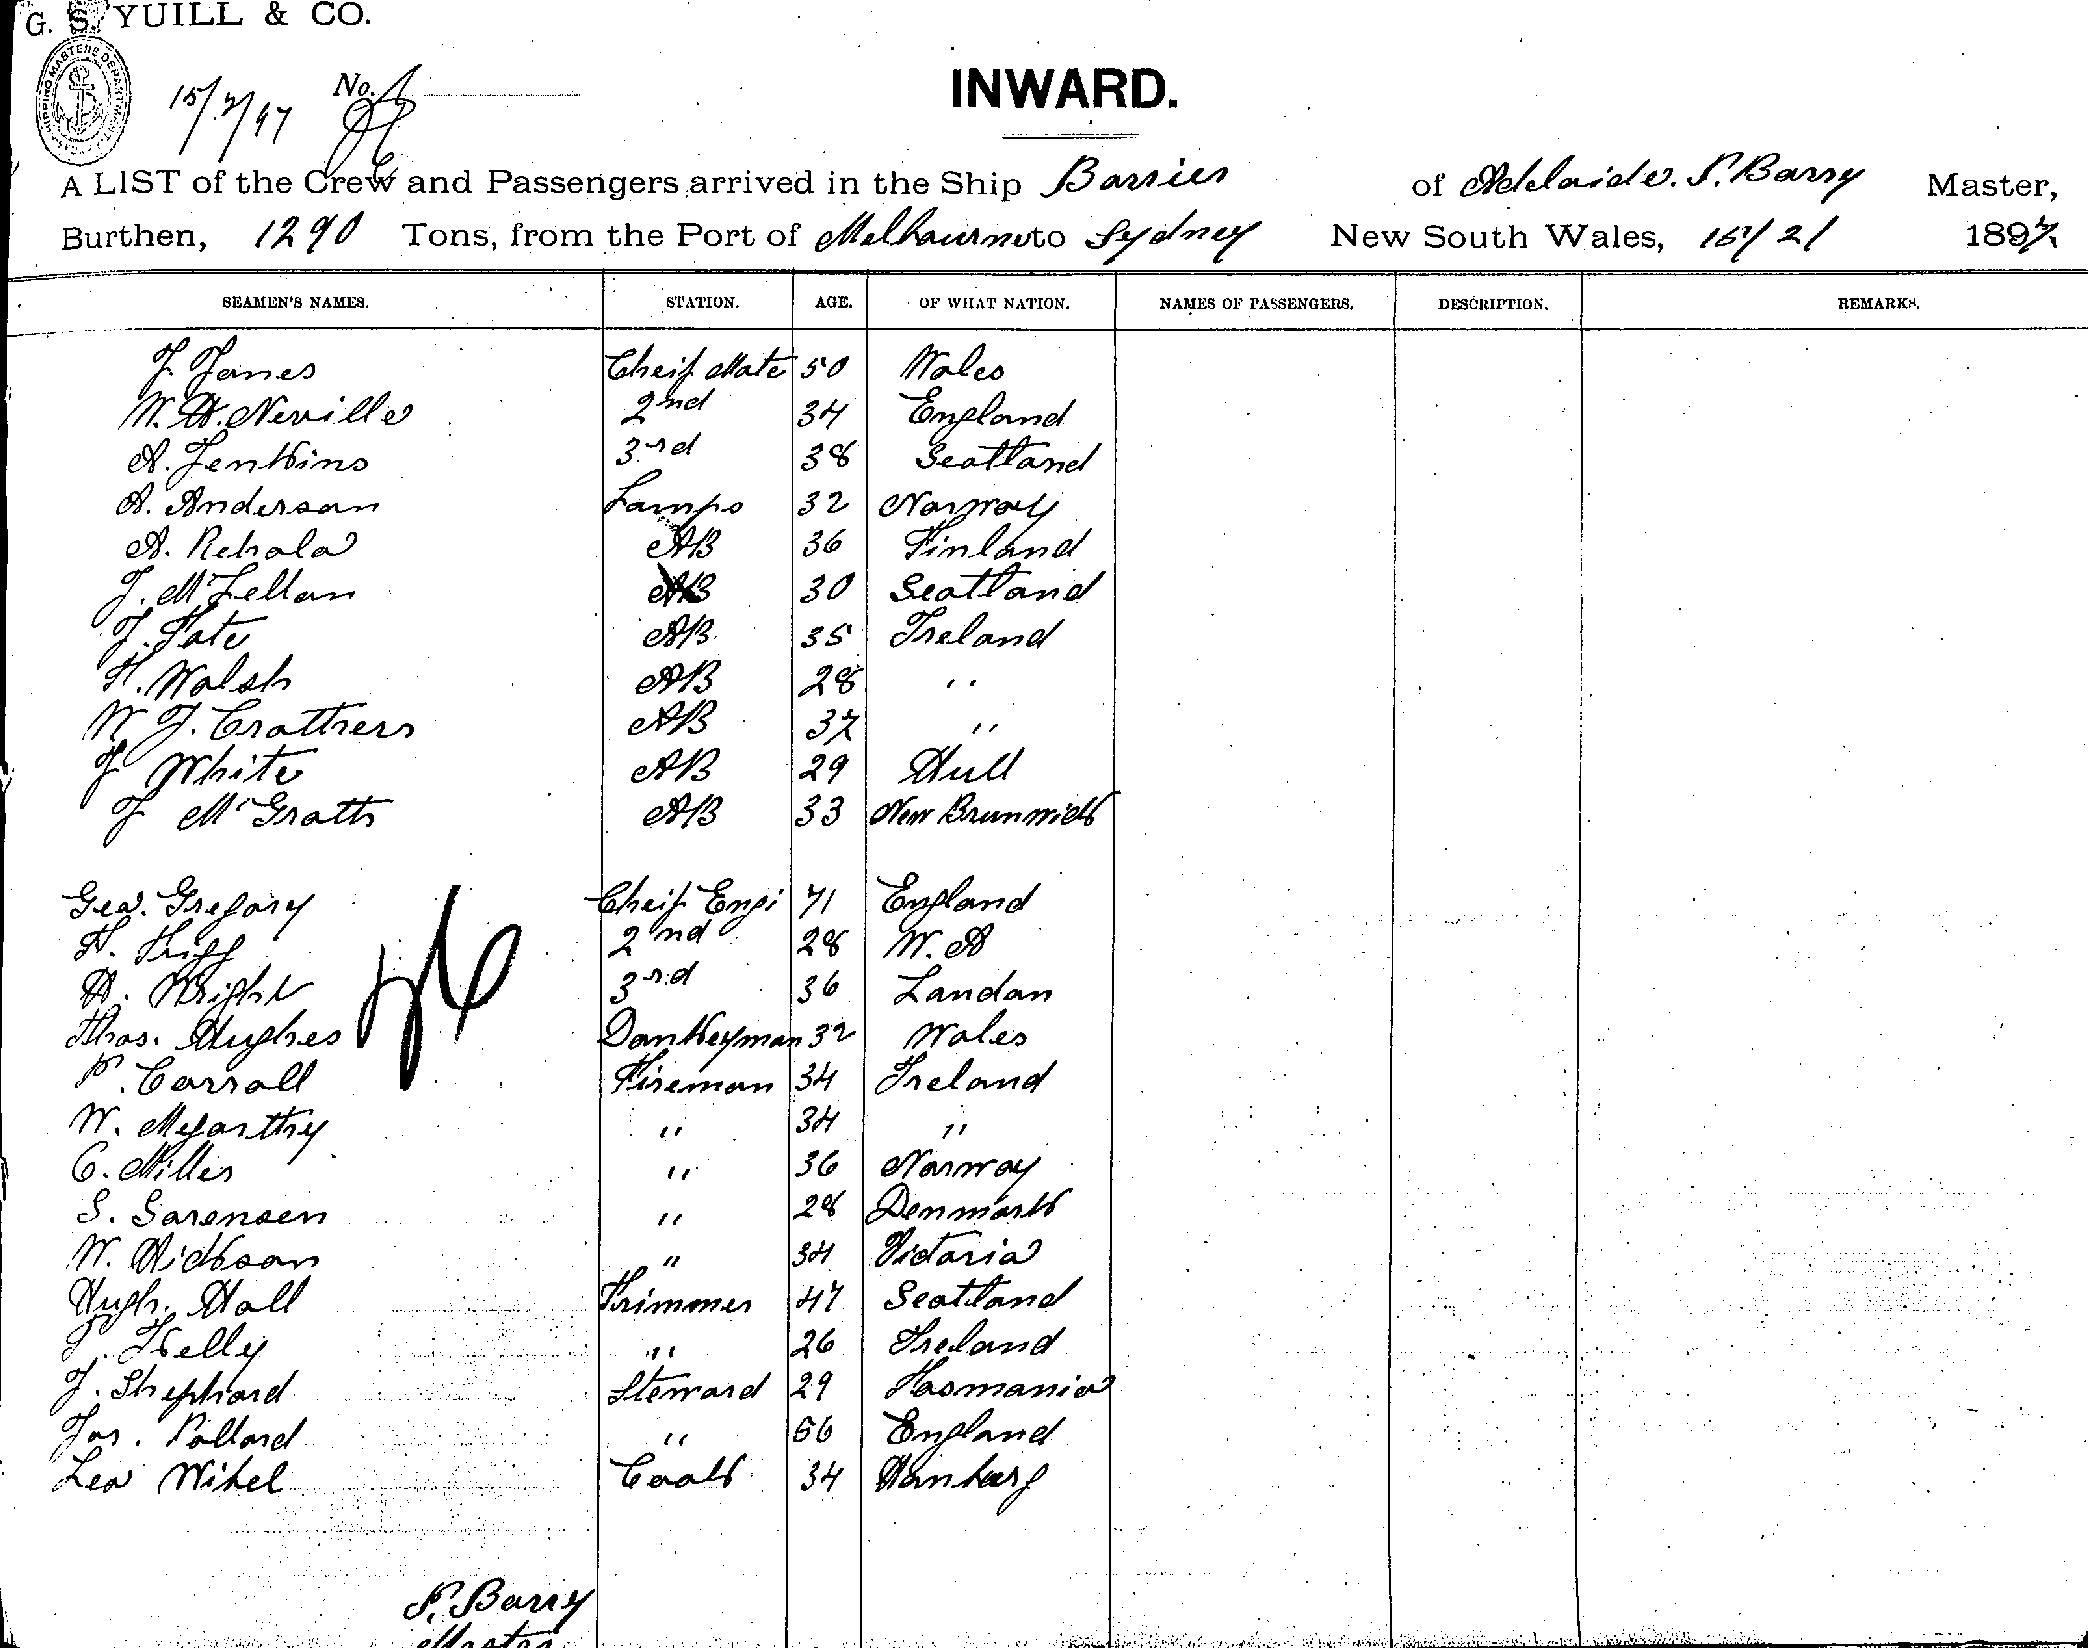 G. S. YUILL & CO.
SHIPPING MASTERS DEPARTMENT
15/2/97 No.
INWARD.
A LIST of the Crew and Passengers arrived in the Ship Barrier of Adelaide. P. Barry Master,
Burthen, 1290 Tons, from the Port of Melbourne to Sydney New South Wales, 15/2/ 1897
SEAMEN'S NAMES. STATION. AGE. OF WHAT NATION. NAMES OF PASSENGERS. DESCRIPTION. REMARKS.
J. Jones Cheif Mate 50 Wales
W. H. Neville 2nd 34 England
A. Jenkins 3rd 38 Scotland
A. Anderson Lamps 32 Norway
A. AB 36 Finland
J. McLellan AB 30 Scotland
J. Tate AB 35 Ireland
T. Walsh AB 28 "
W J. Crothers AB 37 "
J White AB 29 Hull
J McGrath AB 33 New Brunswick
Geo. Gregory Cheif Engi 71 England
H. 2nd 28 W. A
H. Wright 3rd 36 London
Thos. Hughes Donkeyman 32 Wales
P. Carroll Fireman 34 Ireland
W. Mcarthy " 34 "
C. Miller " 36 Norway
S. Sorensen " 28 Denmark
W. Hickson " 34 Victoria
Hugh. Hall Trimmer 47 Scotland
J. Kelly " 26 Ireland
J. Shephard Steward 29 Tasmania
Jas. Pollard " 56 England
Leo Wikel Cook 34 Hamburg
P. Barry
Master